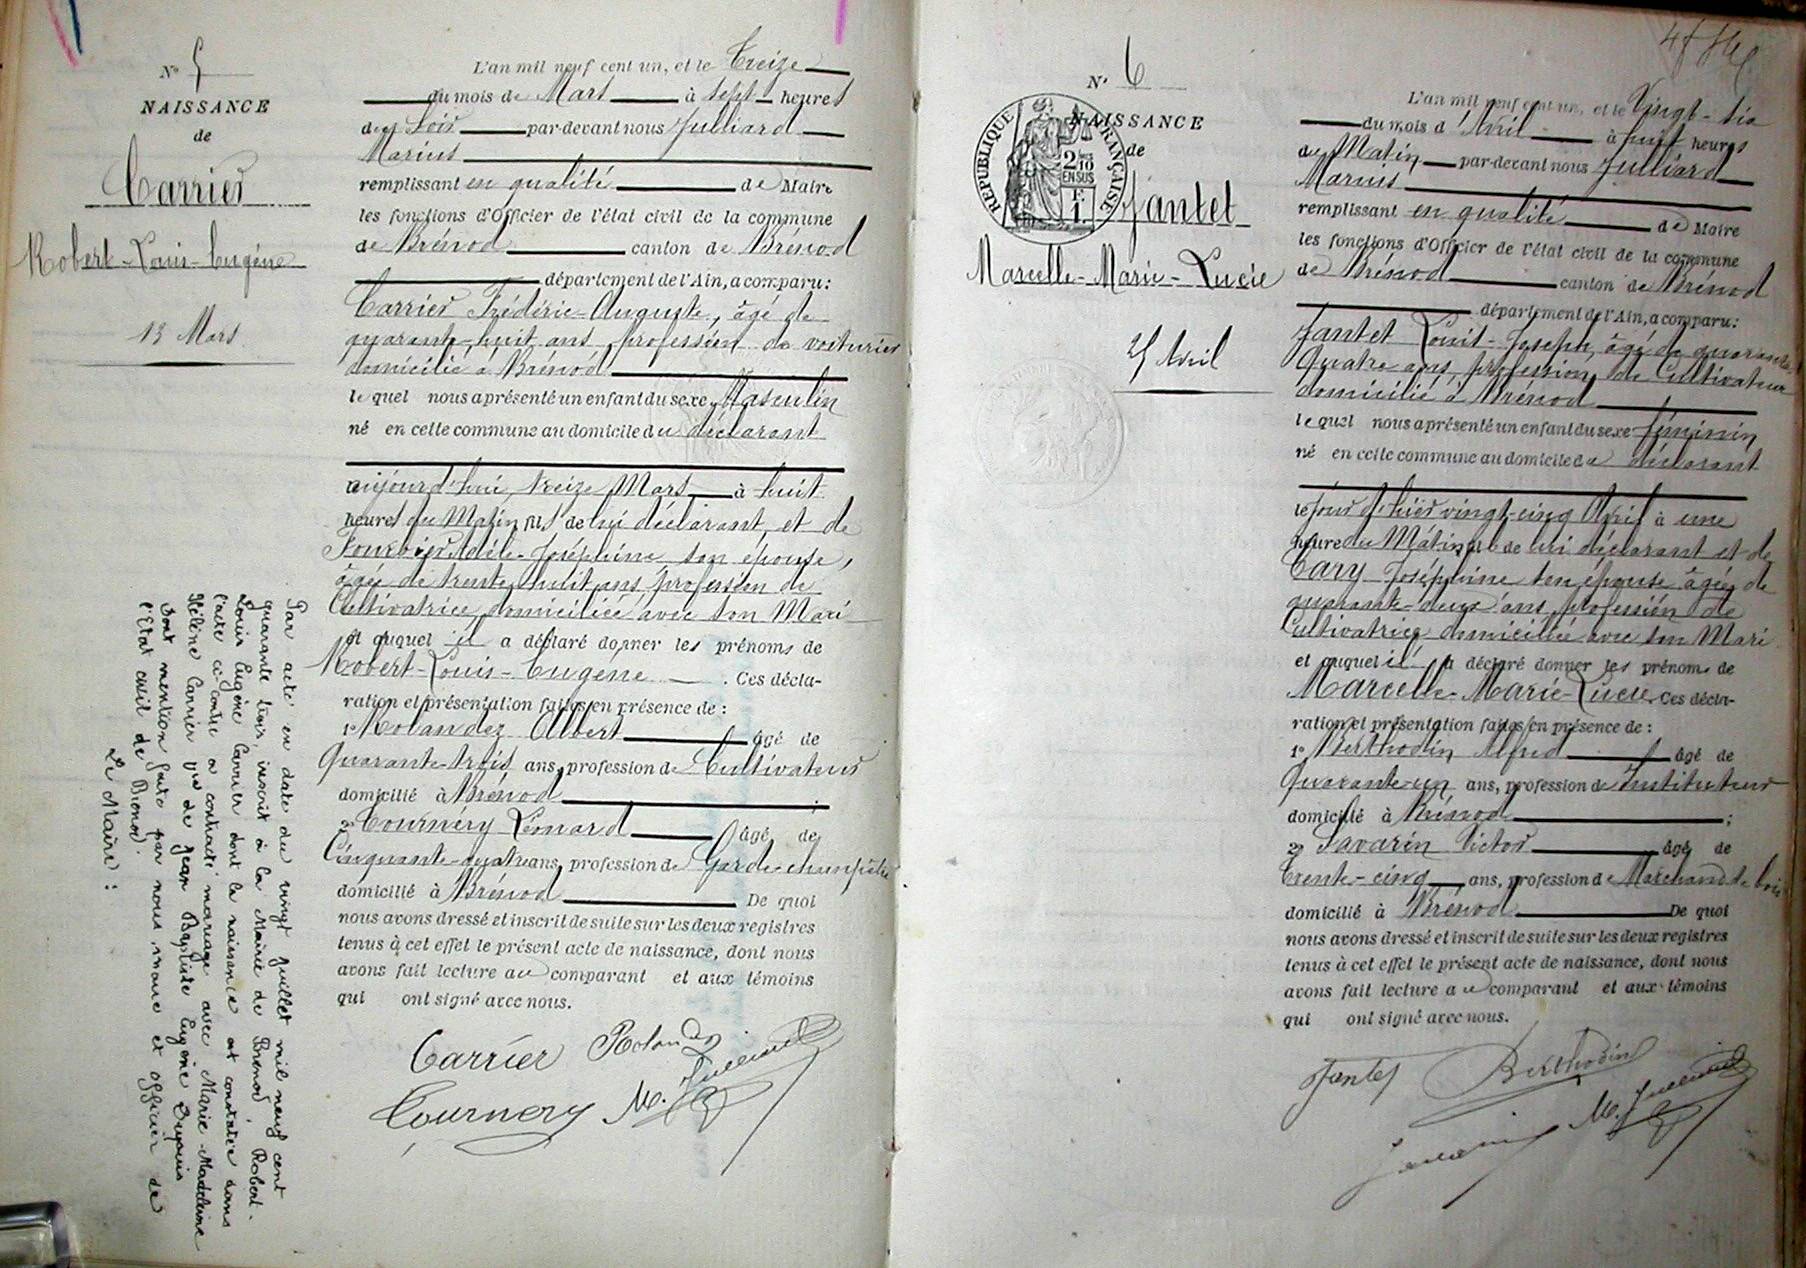 N° 5
NAISSANCE
de
Carrier
Robert-Louis-Eugène
13 Mars
Par acte en date du vingt juillet mil neuf cent
quarante trois, inscrit à la Mairie de Brenod, Robert-
Louis Eugène Carrier dont la naissance est constatée dans
l'acte ci-contre a contracté mariage avec Marie-Madeleine
Hélène Carrier de Jean Baptiste Eugène Dupuis
Dont mention faite par nous, maire et officier de
l'Etat civil de Brenod.
Le Maire :
L'an mil neuf cent un, et le Treize
du mois de Mars à sept heures
du Soir par-devant nous Julliard
Marius
remplissant en qualité de Maire
les fonctions d'Officier de l'état civil de la commune
de Brénod canton de Brénod
département de l'Ain, a comparu:
Carrier Frédéric-Auguste, âgé de
quarante-huit ans, profession de voiturier
domicilié à Brénod
le quel nous a présenté un enfant du sexe Masculin
né en cette commune au domicile du déclarant
aujourd'hui treize Mars à huit
heures du Matin, fils de lui déclarant et de
Adèle-Joséphine son épouse,
âgée de trente huit ans profession de
Cultivatrice, domiciliée avec son Mari
et auquel il a déclaré donner les prénoms de
Robert-Louis-Eugène. Ces décla-
ration et présentation faites en présence de :
1° Rolandez Albert âgé de
Quarante-trois ans, profession de Cultivateur
domicilié à Brénod;
2° Tournery Léonard âgé de
Cinquante-quatre ans, profession de Garde-champêtre
domicilié à Brénod De quoi
nous avons dressé et inscrit de suite sur les deux registres
tenus à cet effet le présent acte de naissance, dont nous
avons fait lecture au comparant et aux témoins
qui ont signé avec nous.
Carrier Rolandez
Tournery M. Julliard
N° 6
NAISSANCE
de
RÉPUBLIQUE FRANÇAISE
2/10
EN SUS
F.
1.
Jantet
Marcelle-Marie-Lucie
25 Avril
L'an mil neuf cent un, et le Vingt-six
du mois d'Avril à huit heures
du Matin par-devant nous Julliard
Marius
remplissant en qualité de Maire
les fonctions d'Officier de l'état civil de la commune
de Brénod canton de Brénod
département de l'Ain, a comparu:
Jantet Louis-Joseph, âgé de quarante-
Quatre ans, profession de Cultivateur
domicilié à Brénod
le quel nous a présenté un enfant du sexe féminin
né en cette commune au domicile du déclarant
le jour d'hier vingt-cinq Avril à une
heure du Matin, fille de lui déclarant et de
Cary Joséphine son épouse âgée de
quarante-deux ans, profession de
Cultivatrice domiciliée avec son Mari
et auquel il a déclaré donner les prénoms de
Marcelle-Marie-Lucie. Ces décla-
ration et présentation faites en présence de :
1° Berthodin Alfred âgé de
Quarante-un ans, profession de Instituteur
domicilié à Brénod;
2° Savarin Victor âgé de
trente-cinq ans, profession de Marchand de bois
domicilié à Brénod De quoi
nous avons dressé et inscrit de suite sur les deux registres
tenus à cet effet le présent acte de naissance, dont nous
avons fait lecture au comparant et aux témoins
qui ont signé avec nous.
Jantet Berthodin
Savarin M. Julliard